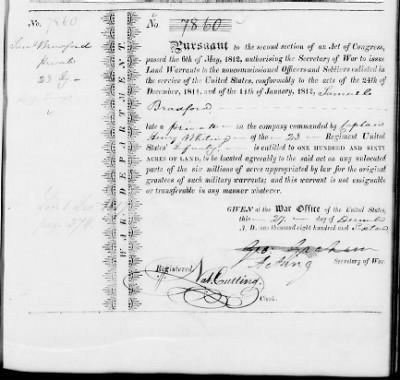 No. 7860
Saml Bradford
Private
23
No. 7860
Pursuant to the second section of an Act of Congress,
passed the 6th of May, 1812, authorising the Secretary of War to issue
Land Warrants to the noncommissioned Officers and Soldiers enlisted in
the service of the United States, conformably to the acts of the 24th of
December, 1811, and of the 11th of January, 1812, Samuel
Bradford
late a private in the company commanded by Captain
Henry Whiting of the 23 Regiment United
States' Infantry is entitled to ONE HUNDRED AND SIXTY
ACRES OF LAND, to be located agreeably to the said act on any unlocated
part of the six millions of acres appropriated by law for the original
grantees of such military warrants; and this warrant is not assignable
or transferable in any manner whatever.
WAR DEPARTMENT.
GIVEN at the War Office of the United States,
this 27 day of December
A. D. one thousand eight hundred and Sixteen
Geo Graham
Acting
Secretary of War.
Registered
Nat. Cutting
Clerk.